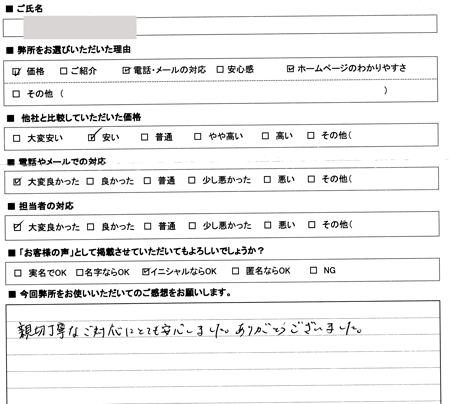 ■ ご氏名
■ 弊所をお選びいただいた理由
☑ 価格 □ ご紹介 ☑ 電話・メールの対応 □ 安心感 ☑ ホームページのわかりやすさ
□ その他 ( )
■ 他社と比較していただいた価格
□ 大変安い ☑ 安い □ 普通 □ やや高い □ 高い □ その他(
■ 電話やメールでの対応
☑ 大変良かった □ 良かった □ 普通 □ 少し悪かった □ 悪い □ その他(
■ 担当者の対応
☑ 大変良かった □ 良かった □ 普通 □ 少し悪かった □ 悪い □ その他(
■ 「お客様の声」として掲載させていただいてもよろしいでしょうか？
□ 実名でOK □ 名字ならOK ☑ イニシャルならOK □ 匿名ならOK □ NG
■ 今回弊所をお使いいただいてのご感想をお願いします。
親切丁寧なご対応にとても安心しました。ありがとうございました。